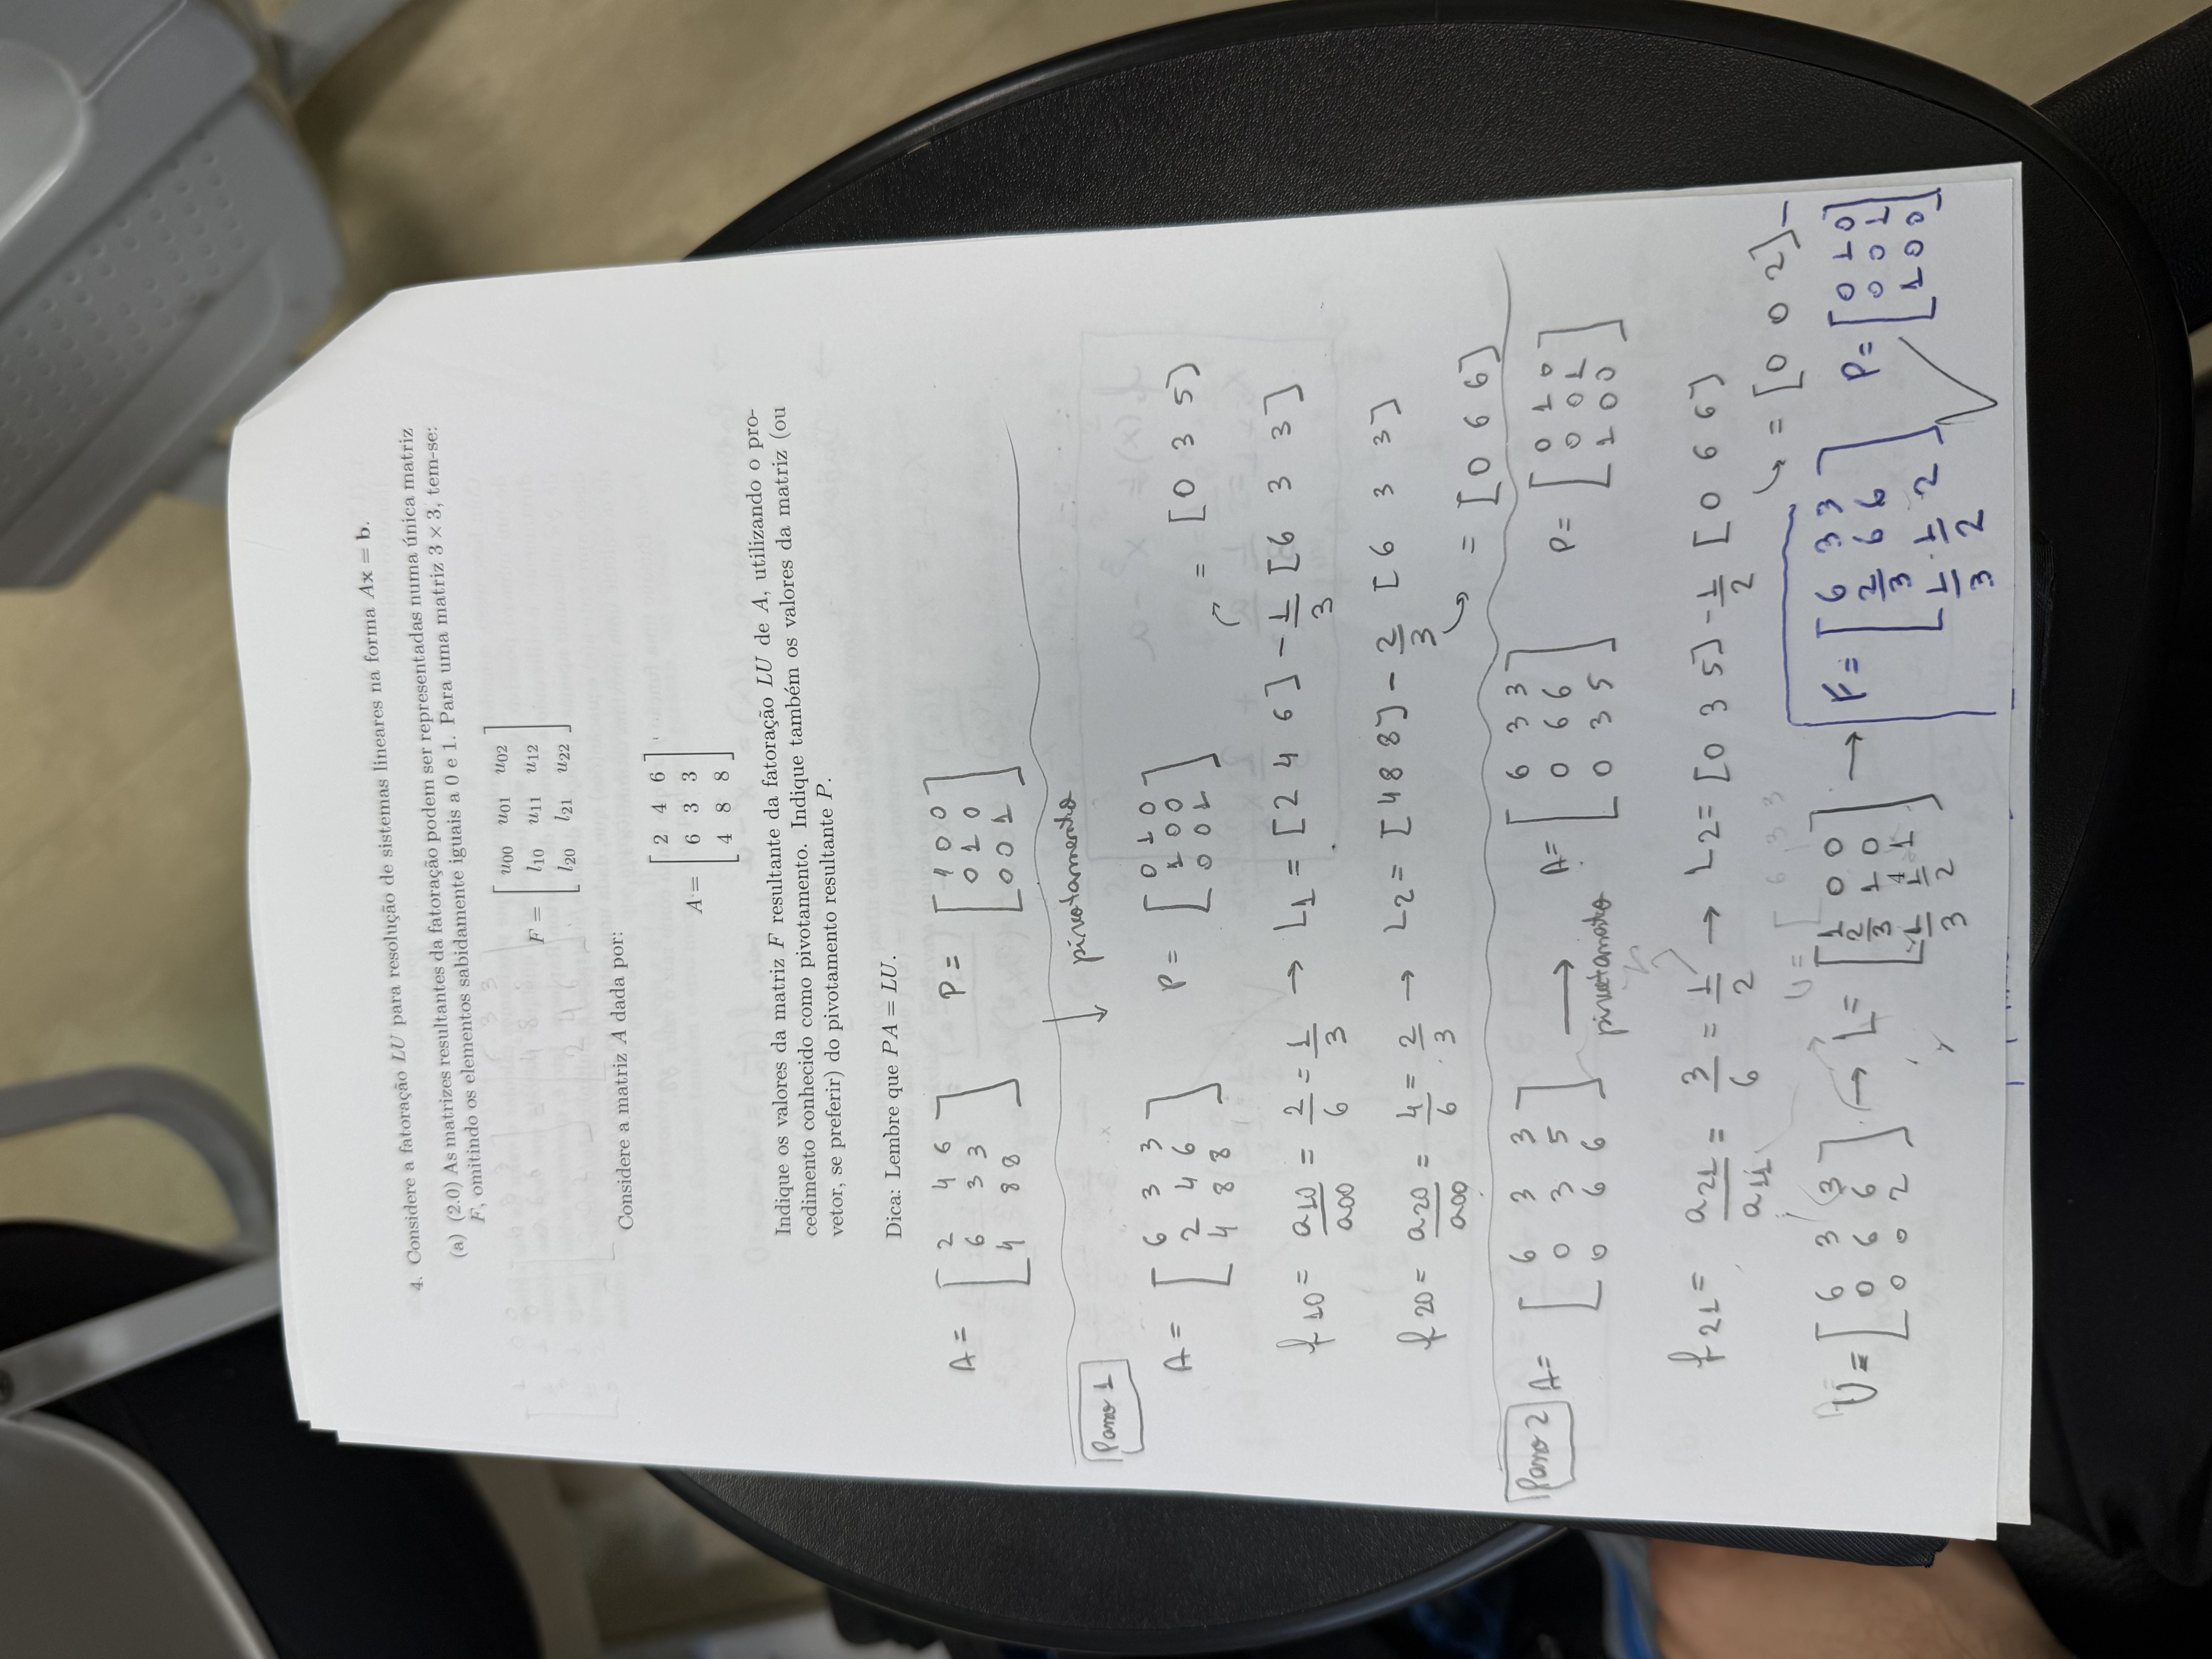 4. Considere a fatoração LU para resolução de sistemas lineares na forma Ax = b.
(a) (2.0) As matrizes resultantes da fatoração podem ser representadas numa única matriz
F, omitindo os elementos sabidamente iguais a 0 e 1. Para uma matriz 3 × 3, tem-se:
u00 u01 u02
F = l10 u11 u12
l20 l21 u22
Considere a matriz A dada por:
2 4 6
A = 6 3 3
4 8 8
Indique os valores da matriz F resultante da fatoração LU de A, utilizando o pro-
cedimento conhecido como pivotamento. Indique também os valores da matriz (ou
vetor, se preferir) do pivotamento resultante P.
Dica: Lembre que PA = LU.
A = [2 4 6 P = [1 0 0
6 3 3 0 1 0
4 8 8] 0 0 1]
↓ pivotamento
Passo 1
A = [6 3 3 P = [0 1 0
2 4 6 1 0 0
4 8 8] 0 0 1]
= [0 3 5]
f10 = a10/a00 = 2/6 = 1/3 → L1 = [2 4 6] - 1/3 [6 3 3]
f20 = a20/a00 = 4/6 = 2/3 → L2 = [4 8 8] - 2/3 [6 3 3]
= [0 6 6]
Passo 2 A = [6 3 3 → A = [6 3 3 P = [0 1 0
0 3 5 pivotamento 0 6 6 0 0 1
0 6 6] 0 3 5] 1 0 0]
f21 = a21/a11 = 3/6 = 1/2 → L2 = [0 3 5] - 1/2 [0 6 6]
= [0 0 2]
U = [6 3 3 → L = [1 0 0 → F = [6 3 3 P = [0 1 0
0 6 6 2/3 1 0 2/3 6 6 0 0 1
0 0 2] 1/3 1/2 1] 1/3 1/2 2] 1 0 0]
4